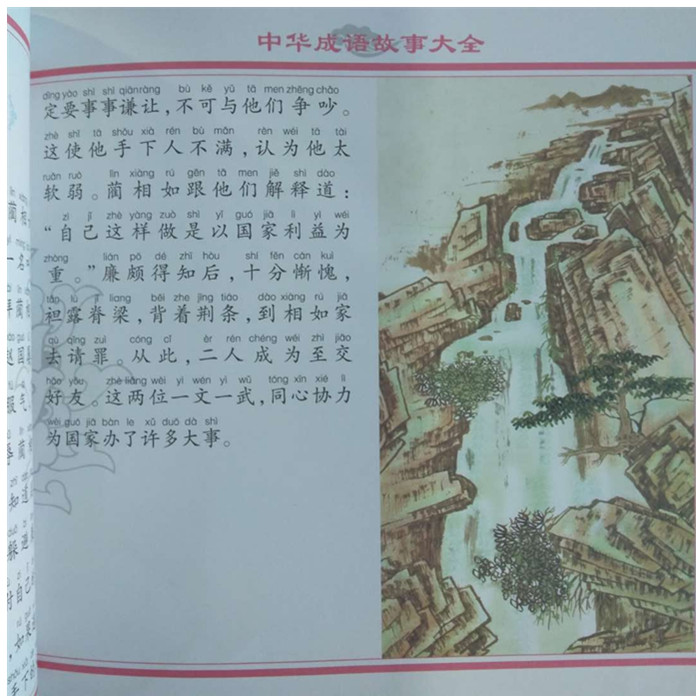 中华成语故事大全
dìng yào shì shì qiān ràng bù kě yǔ tā men zhēng chǎo
定要事事谦让，不可与他们争吵。
zhè shǐ tā shǒu xià rén bù mǎn rèn wéi tā tài
这使他手下人不满，认为他太
ruǎn ruò lìn xiàng rú gēn tā men jiě shì dào
软弱。蔺相如跟他们解释道：
zì jǐ zhè yàng zuò shì yǐ guó jiā lì yì wéi
“自己这样做是以国家利益为
zhòng lián pō dé zhī hòu shí fēn cán kuì
重。”廉颇得知后，十分惭愧，
tǎn lù jǐ liang bēi zhe jīng tiáo dào xiàng rú jiā
袒露脊梁，背着荆条，到相如家
qù qǐng zuì cóng cǐ èr rén chéng wéi zhì jiāo
去请罪。从此，二人成为至交
hǎo yǒu zhè liǎng wèi yì wén yì wǔ tóng xīn xié lì
好友。这两位一文一武，同心协力
wèi guó jiā bàn le xǔ duō dà shì
为国家办了许多大事。